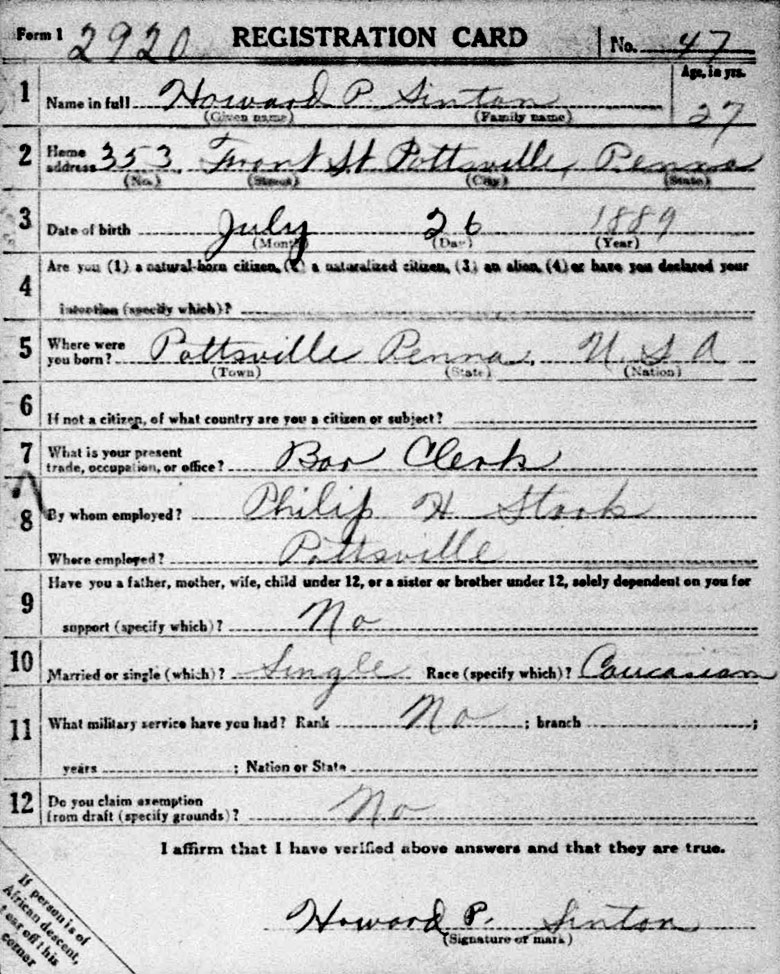 Form 1 2920 REGISTRATION CARD No. 47
1 Name in full Howard P. Sinton Age, in yrs. 27
(Given name) (Family name)
2 Home address 353 Front St Pottsville, Penna
(No.) (Street) (City) (State)
3 Date of birth July 26 1889
(Month) (Day) (Year)
4 Are you (1) a natural-born citizen, (2) a naturalized citizen, (3) an alien, (4) or have you declared your
intention (specify which)?
5 Where were you born? Pottsville Penna. U. S A
(Town) (State) (Nation)
6 If not a citizen, of what country are you a citizen or subject?
7 What is your present trade, occupation, or office? Bar Clerk
8 By whom employed? Philip H
Where employed? Pottsville
9 Have you a father, mother, wife, child under 12, or a sister or brother under 12, solely dependent on you for
support (specify which)? No
10 Married or single (which)? Single Race (specify which)? Caucasian
11 What military service have you had? Rank No ; branch ;
years ; Nation or State
12 Do you claim exemption from draft (specify grounds)? No
I affirm that I have verified above answers and that they are true.
Howard P. Sinton
(Signature or mark)
If person is of
African descent,
tear off this
corner